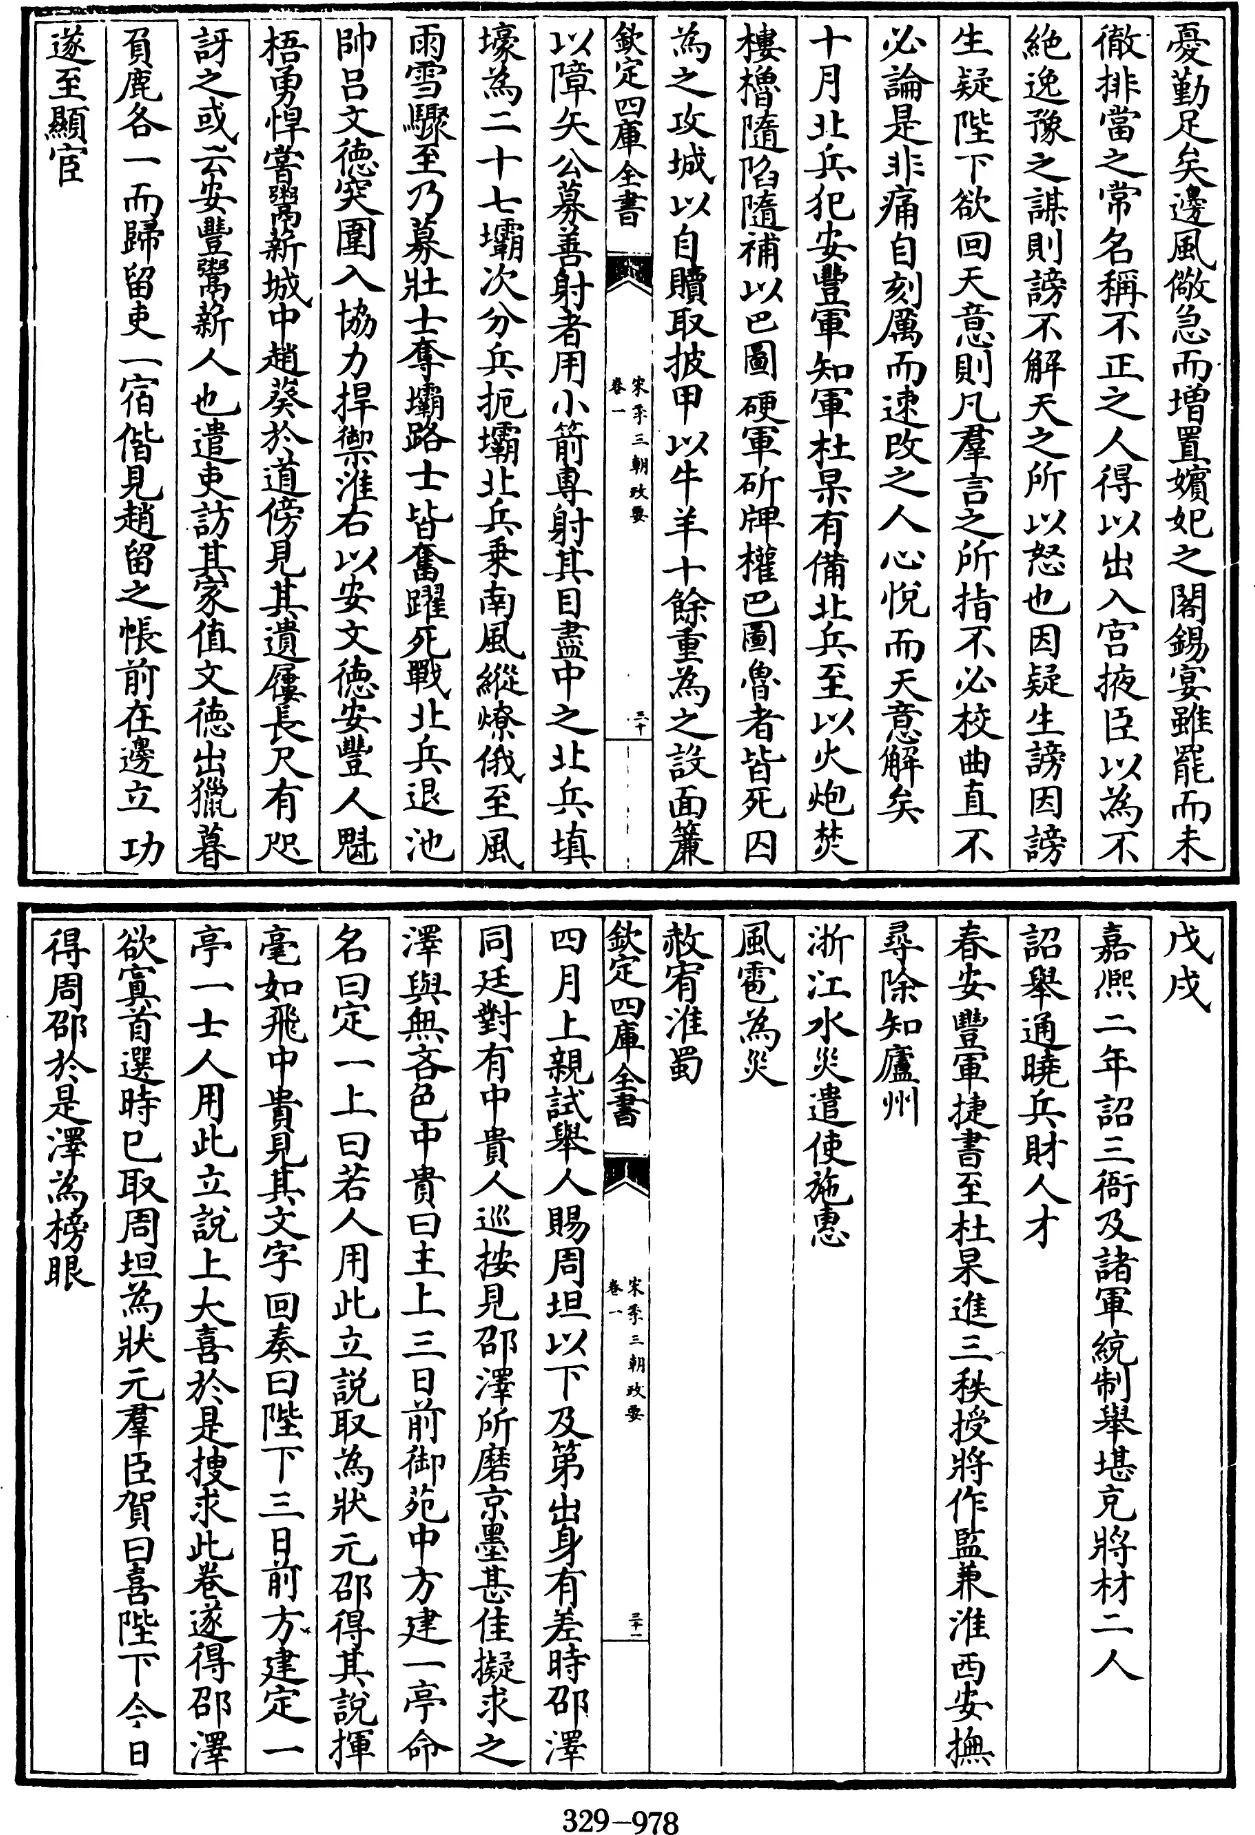 憂勤足矣邊風儆急而増置嬪妃之閣錫宴雖罷而未
徹排當之常名稱不正之人得以出入宫掖臣以為不
絶逸豫之謀則謗不解天之所以怒也因疑生謗因謗
生疑陛下欲回天意則凡羣言之所指不必校曲直不
必論是非痛自刻厲而速改之人心悅而天意解矣
十月北兵犯安豐軍知軍杜杲有備北兵至以火炮焚
樓櫓隨陷隨補以巴圖硬軍斫牌櫂巴圖魯者皆死囚
為之攻城以自贖取披甲以牛羊十餘重為之設面簾
欽定四庫全書
宋季三朝政要
卷一
三十
以障矢公募善射者用小箭專射其目盡中之北兵填
壕為二十七壩次分兵扼壩北兵乗南風縱燎俄至風
雨雪驟至乃募壯士奪壩路士皆奮躍死戰北兵退池
帥吕文徳突圍入協力捍禦淮右以安文徳安豐人魁
梧勇悍嘗鬻薪城中趙葵於道傍見其遺屨長尺有咫
訝之或云安豐鬻薪人也遣吏訪其家值文徳出獵暮
負鹿各一而歸留吏一宿偕見趙留之帳前在邊立功
遂至顯宦
戊戌
嘉熈二年詔三衙及諸軍統制舉堪充將材二人
詔舉通曉兵財人才
春安豐軍捷書至杜杲進三秩授將作監兼淮西安撫
尋除知廬州
浙江水災遣使施惠
風雹為災
赦宥淮蜀
欽定四庫全書
宋季三朝政要
卷一
三十一
四月上親試舉人賜周坦以下及第出身有差時邵澤
同廷對有中貴人巡按見邵澤所磨京墨甚佳擬求之
澤與無吝色中貴曰主上三日前御苑中方建一亭命
名曰定一上曰若人用此立説取為狀元邵得其說揮
毫如飛中貴見其文字回奏曰陛下三日前方建定一
亭一士人用此立說上大喜於是搜求此卷遂得邵澤
欲寘首選時已取周坦為狀元羣臣賀曰喜陛下今日
得周邵於是澤為榜眼
329-978